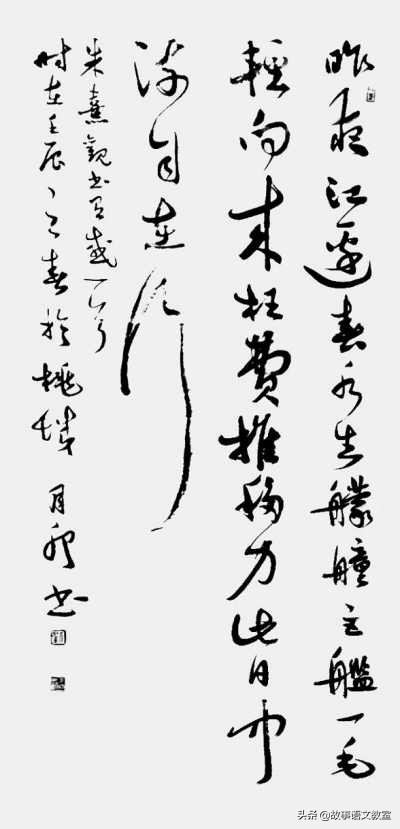 昨夜江邊春水生艨艟巨艦一毛
輕向来枉費推移力此日中
流自在行
朱熹觀书有感一首
时在壬辰之春於桃城月书
头条 @故事语文教室